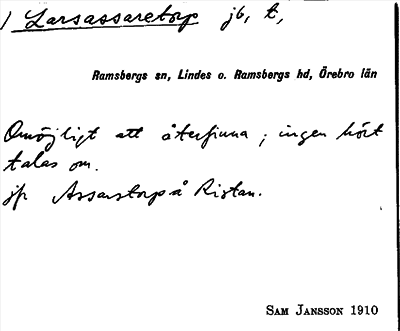 ) Larsassaretorp jb, t,
Ramsbergs sn, Lindes o. Ramsbergs hd, Örebro län
Omöjligt att återfinna; ingen hört
talas om.
jfr Assarstorp å Ristan.
SAM JANSSON 1910